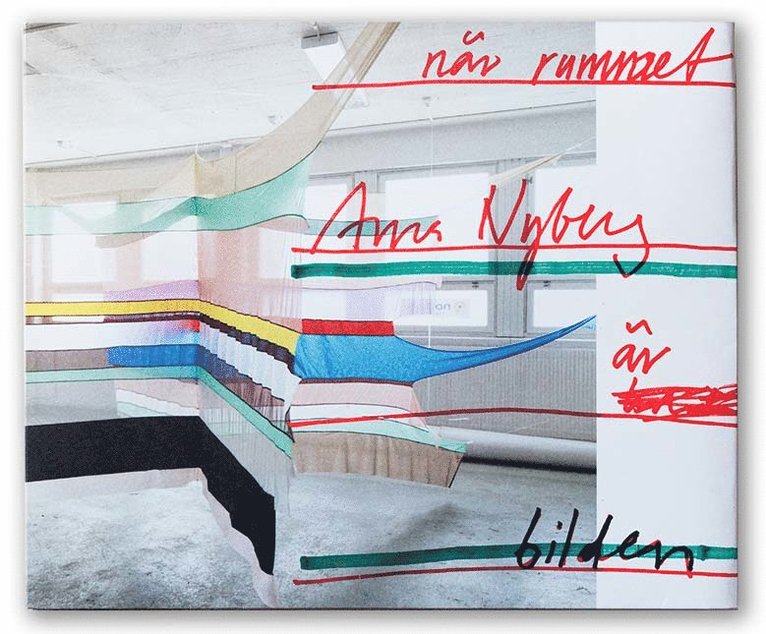 när rummet
Anna Nyberg
är
bilden